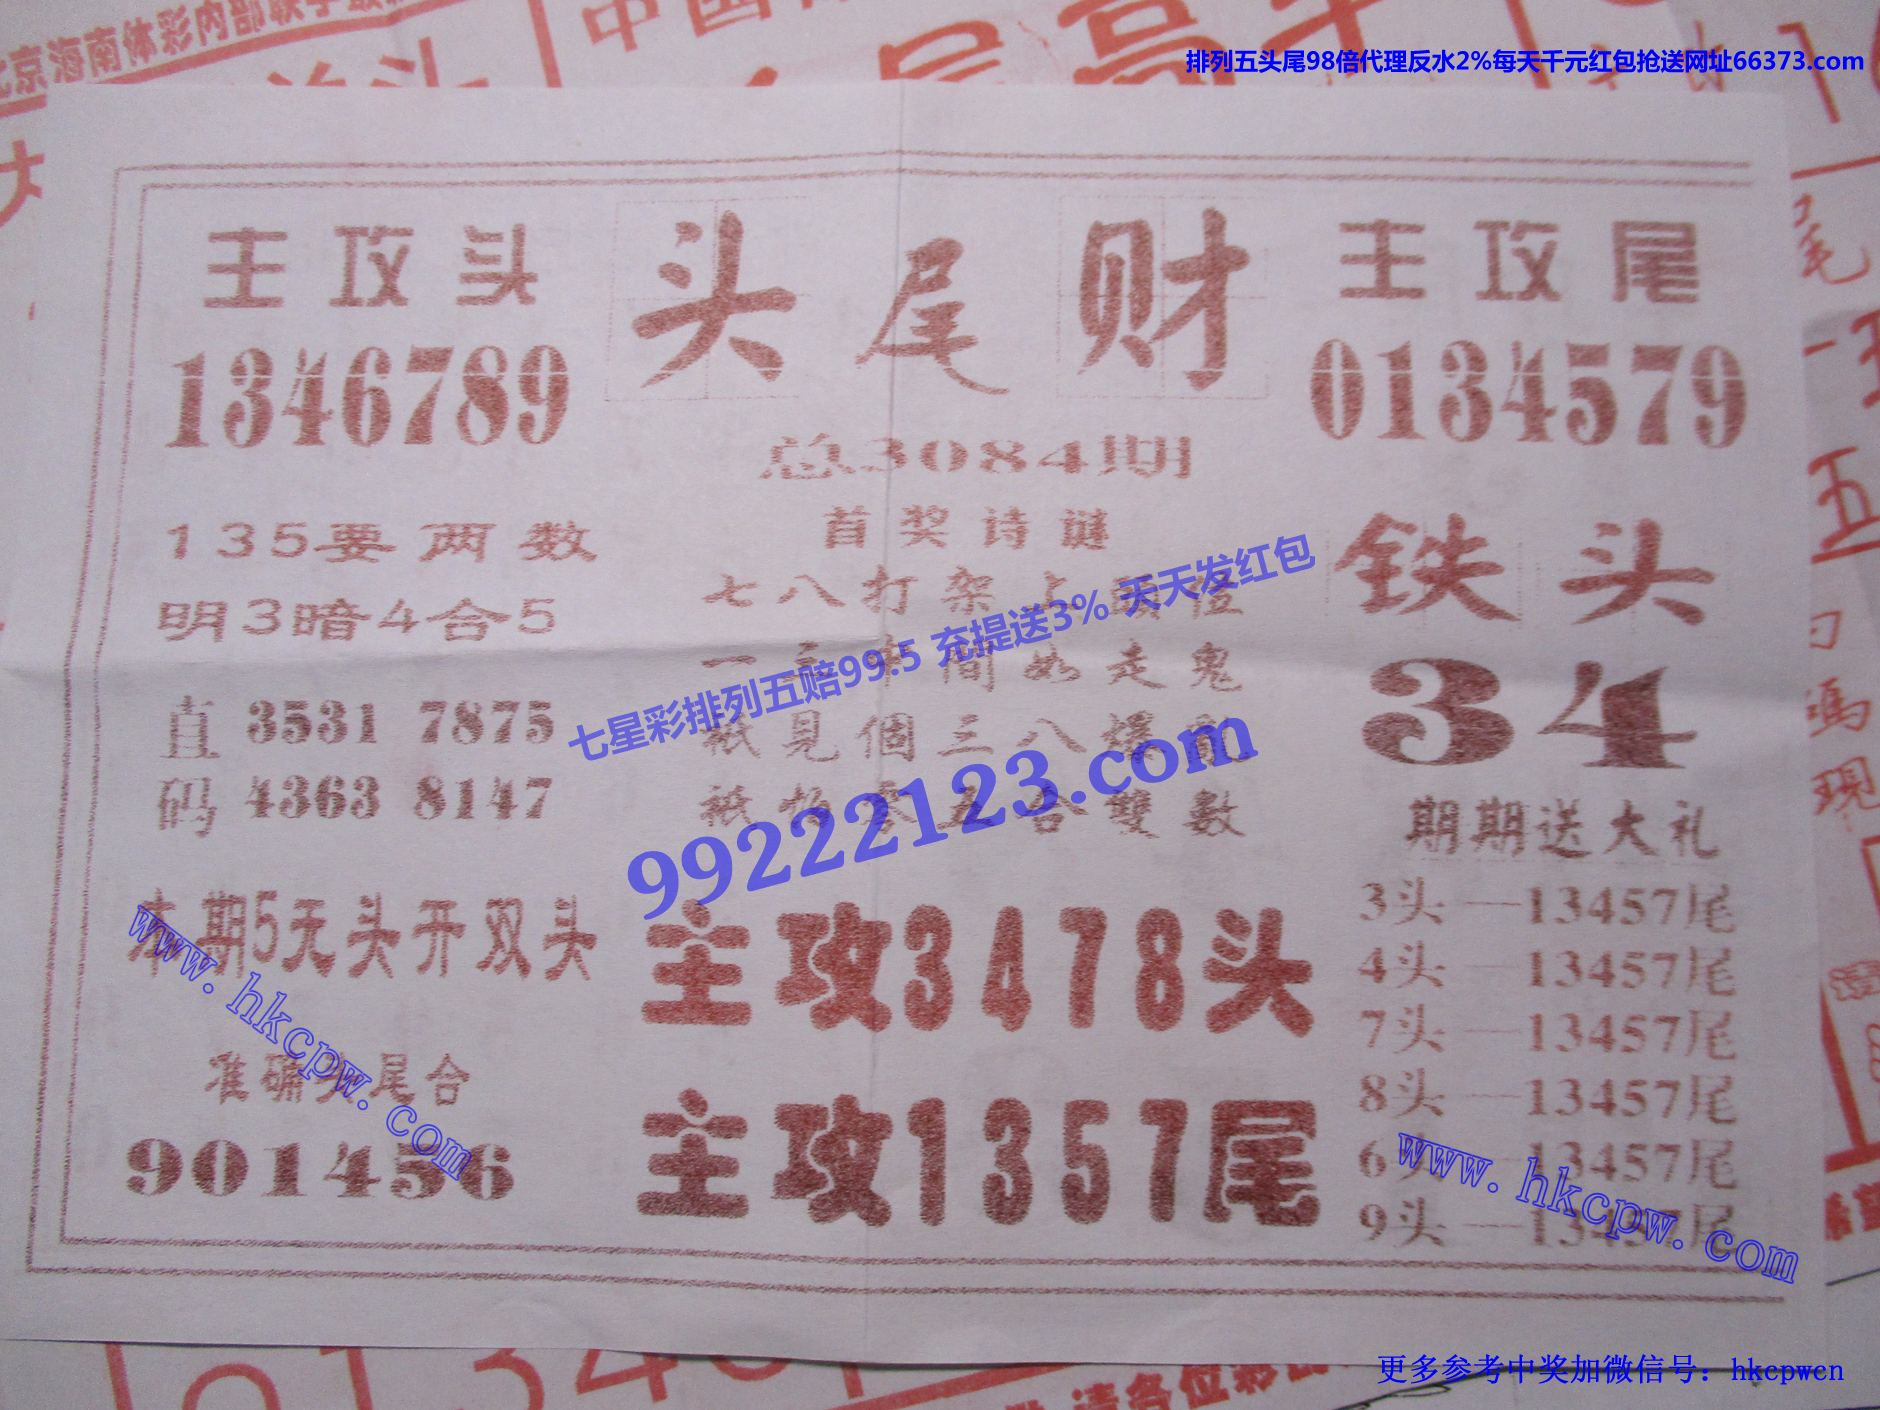 北京海南体彩内部联手
中国
排列五头尾98倍代理反水2%每天千元红包抢送网址66373.com
主攻头
1346789
头尾财
主攻尾
0134579
总3084期
首奖诗谜
135要两数
明3暗4合5
七八打架上 位
一 間 走鬼
祇見個三八爆
祇 合雙數
铁头
34
直 3531 7875
码 4363 8147
七星彩排列五赔99.5 充提送3% 天天发红包
99222123.com
期期送大礼
3头—13457尾
4头—13457尾
7头—13457尾
8头—13457尾
6头—13457尾
9头—13457尾
本期5无头开双头
主攻3478头
准确头尾合
901456
主攻1357尾
www.hkcpw.com
www.hkcpw.com
尾
五
碼
現
请各位彩
更多参考中奖加微信号：hkcpwcn